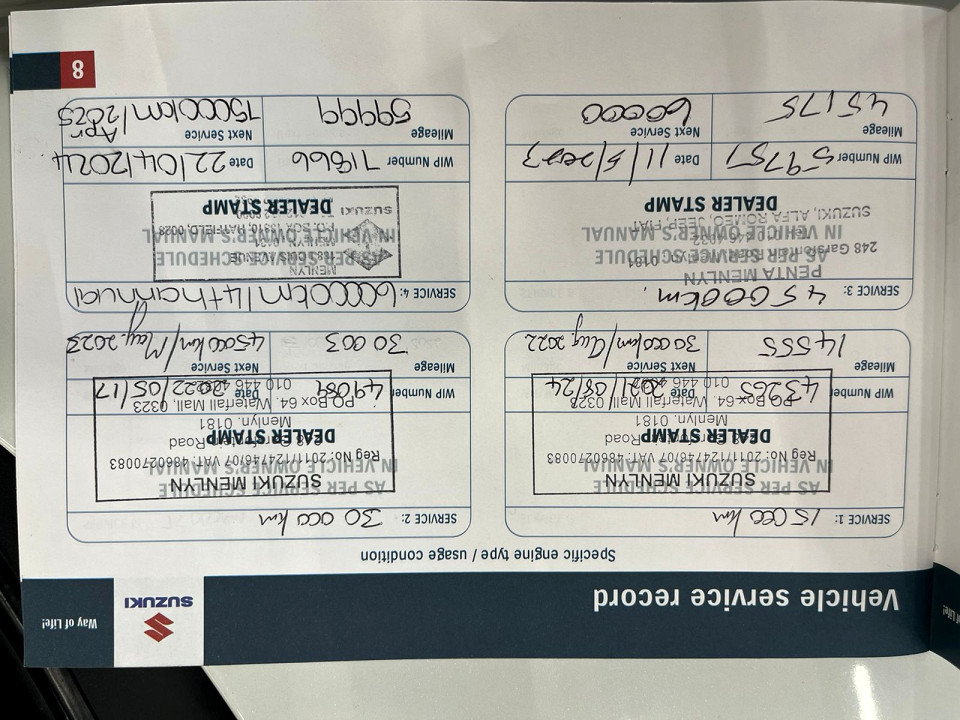 Vehicle service record
SUZUKI
Way of Life!
Specific engine type / usage condition
SERVICE 1: 15 000 km
AS PER SERVICE SCHEDULE
IN VEHICLE OWNER'S MANUAL
DEALER STAMP
SUZUKI MENLYN
Reg No: 2011/124746/07 VAT: 4860270083
Menlyn. 0181
PO Box 64, Waterfall Mall, 0323
010 446
WIP Number 43265
Date 2021/08/24
Mileage 14555
Next Service 30 000 km/Aug. 2022
SERVICE 2: 30 000 km
AS PER SERVICE SCHEDULE
IN VEHICLE OWNER'S MANUAL
DEALER STAMP
SUZUKI MENLYN
Reg No: 2011/124746/07 VAT: 4860270083
Road
Menlyn. 0181
PO Box 64, Waterfall Mall, 0323
010 446
WIP Number 49084
Date 2022/05/17
Mileage 30 003
Next Service 45000 km/May. 2023
SERVICE 3: 45 000km.
AS PER SERVICE SCHEDULE
IN VEHICLE OWNER'S MANUAL
DEALER STAMP
PENTA MENLYN
SUZUKI, ALFA ROMEO, JEEP, FIAT
WIP Number 59757
Date 11/5/2023
Mileage 45175
Next Service 60000
SERVICE 4: 60000km/4thannual
AS PER SERVICE SCHEDULE
IN VEHICLE OWNER'S MANUAL
DEALER STAMP
MENLYN
SUZUKI
HATFIELD, 0028
WIP Number 71866
Date 22/04/2024
Mileage 59999
Next Service 75000km/Apr 2025
8